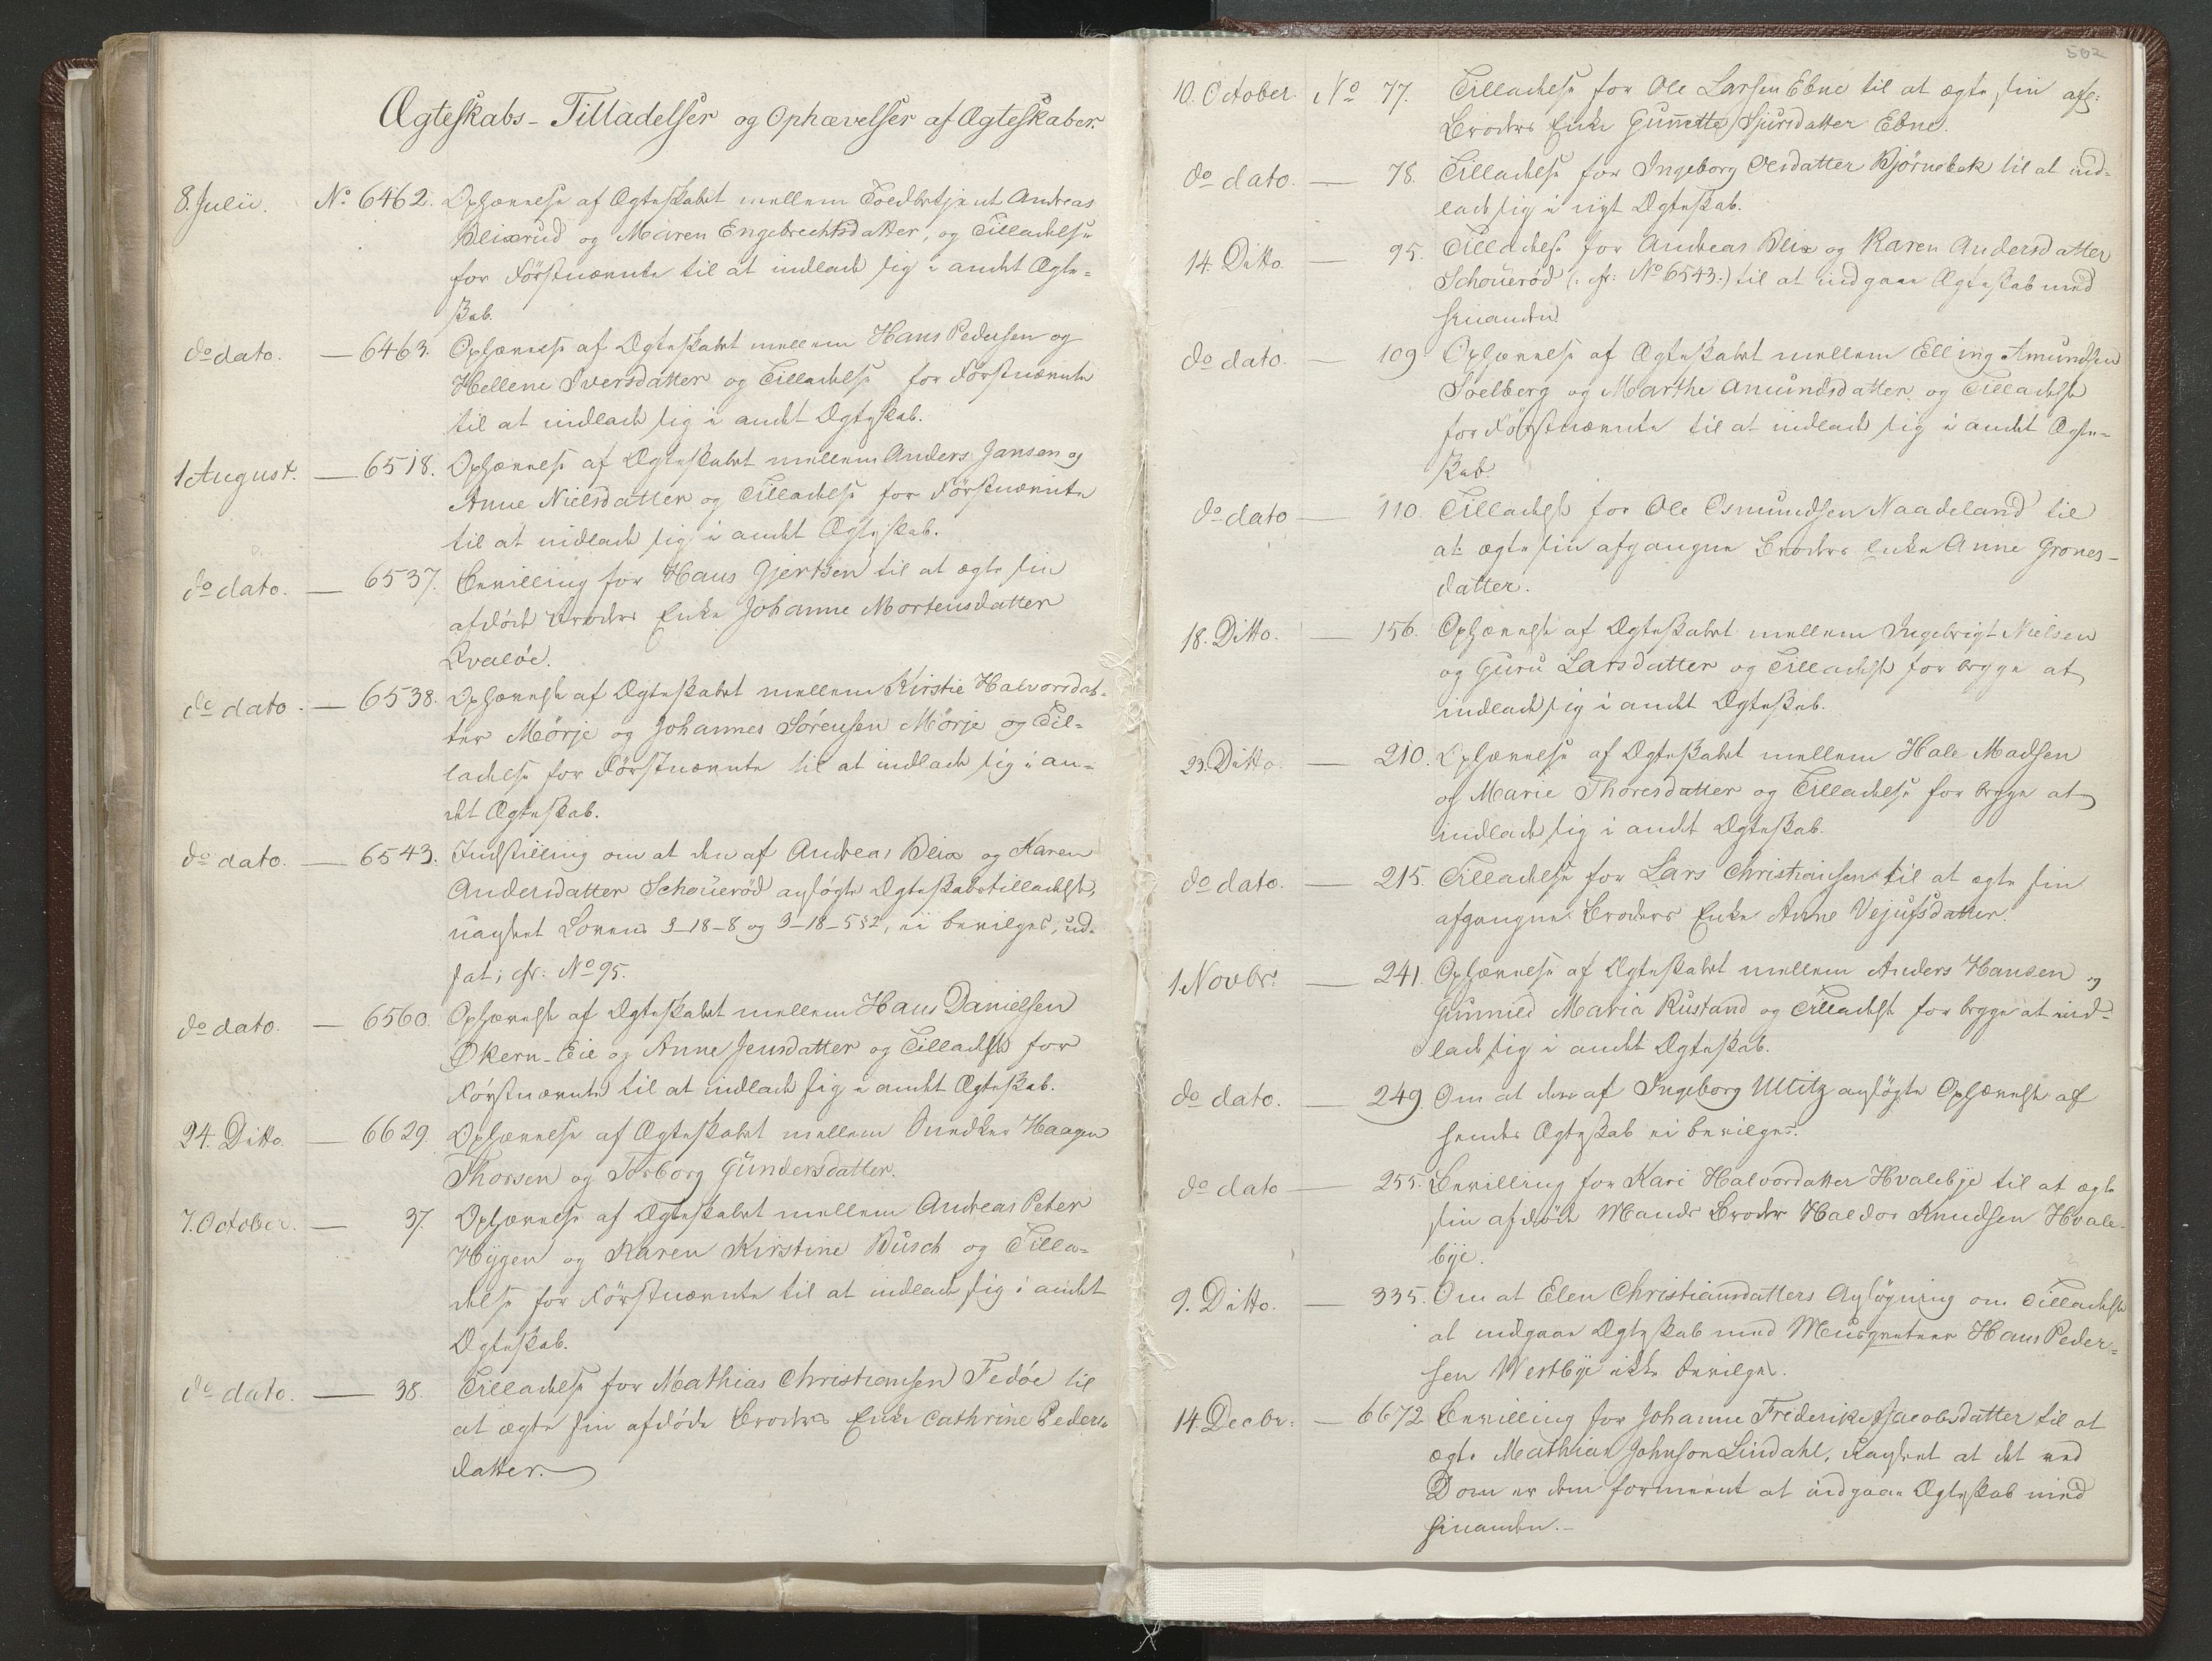 Ægteskabs-Tilladelser og Ophævelser af Ægteskaber.
8. Julii. No 6462. Ophævelse af Ægteskabet mellem Toldbetjent Andreas
Blixrud og Maren Engebrechtsdatter, og Tilladelse
for Førstnævnte til at indlade sig i andet Ægte-
skab.
do dato. — 6463. Ophævelse af Ægteskabet mellem Hans Pedersen og
Hellene Iversdatter og Tilladelse for Førstnævnte
til at indlade sig i andet Ægteskab.
1 August. — 6518. Ophævelse af Ægteskabet mellem Anders Jansen og
Anne Nielsdatter og Tilladelse for Førstnævnte
til at indlade sig i andet Ægteskab.
do dato. — 6537. Bevilling for Hans Gjertsen til at ægte sin
afdøde Broders Enke Johanne Mortensdatter
Qvaløe.
do dato. — 6538. Ophævelse af Ægteskabet mellem Kirstie Halvorsdat-
ter Mørje og Johannes Sørensen Mørje og Til-
ladelse for Førstnævnte til at indlade sig i an-
det Ægteskab.
do dato. — 6543. Indstilling om at den af Andreas Blix og Karen
Andersdatter Schouerød ansøgte Ægteskabstilladelse,
uanseet Lovens 3-18-8 og 3-18-5§2, ei bevilges, ud-
sat; cfr: No 95.
do dato. — 6560. Ophævelse af Ægteskabet mellem Hans Danielsen
Økern-Eie og Anne Jensdatter og Tilladelse for
Førstnævnte til at indlade sig i andet Ægteskab.
24. Ditto. — 6629. Ophævelse af Ægteskabet mellem Snedker Haagen
Thorsen og Torborg Gundersdatter.
7. October. — 37. Ophævelse af Ægteskabet mellem Andreas Peter
Hygen og Karen Kirstine Busch og Tilla-
delse for Førstnævnte til at indlade sig i andet
Ægteskab.
do dato. — 38. Tilladelse for Mathias Christiansen Fedøe til
at ægte sin afdøde Broders Enke Cathrine Peders-
datter.
502
10. October. No 77. Tilladelse for Ole Larsen Ebne til at ægte sin afg:
Broders Enke Gunnette Sjursdatter Ebne.
do dato. — 78. Tilladelse for Ingeborg Olsdatter Bjørnebek til at ind-
lade sig i nyt Ægteskab.
14. Ditto. — 95. Tilladelse for Andreas Blix og Karen Andersdatter
Schouerød (: cfr: No 6543:) til at indgaae Ægteskab med
hinanden.
do dato. — 109. Ophævelse af Ægteskabet mellem Elling Amundsen
Soelberg og Marthe Amundsdatter og Tilladelse
for Førstnævnte til at indlade sig i andet Ægte-
skab.
do dato — 110. Tilladelse for Ole Osmundsen Naadeland til
at ægte sin afgangne Broders Enke Anne Grones-
datter.
18. Ditto. — 156. Ophævelse af Ægteskabet mellem Ingebrigt Nielsen
og Guru Larsdatter og Tilladelse for begge at
indlade sig i andet Ægteskab.
23. Ditto. — 210. Ophævelse af Ægteskabet mellem Hale Madsen
og Marie Thoresdatter og Tilladelse for begge at
indlade sig i andet Ægteskab.
do dato. — 215. Tilladelse for Lars Christiansen til at ægte sin
afgangne Broders Enke Anne Vejulsdatter.
1. Novbr. — 241. Ophævelse af Ægteskabet mellem Anders Hansen og
Gunnild Maria Rustand og Tilladelse for begge at ind-
lade sig i andet Ægteskab.
do dato. — 249. Om at den af Ingeborg Ulitz ansøgte Ophævelse af
hendes Ægteskab ei bevilges.
do dato — 255. Bevilling for Kari Halvorsdatter Hvalebye til at ægte
sin afdøde Mands Broder Haldor Knudsen Hvale-
bye.
9. Ditto. — 335. Om at Elen Christiansdatters Ansøgning om Tilladelse
at indgaae Ægteskab med Musqueteer Hans Peder-
sen Westbye ikke bevilges.
14. Decbr. — 6672 Bevilling for Johanne Friderike Jacobsdatter til at
ægte Mathias Johnson Lindahl, uanseet at det ved
Dom er dem formeent at indgaae Ægteskab med
hinanden.-